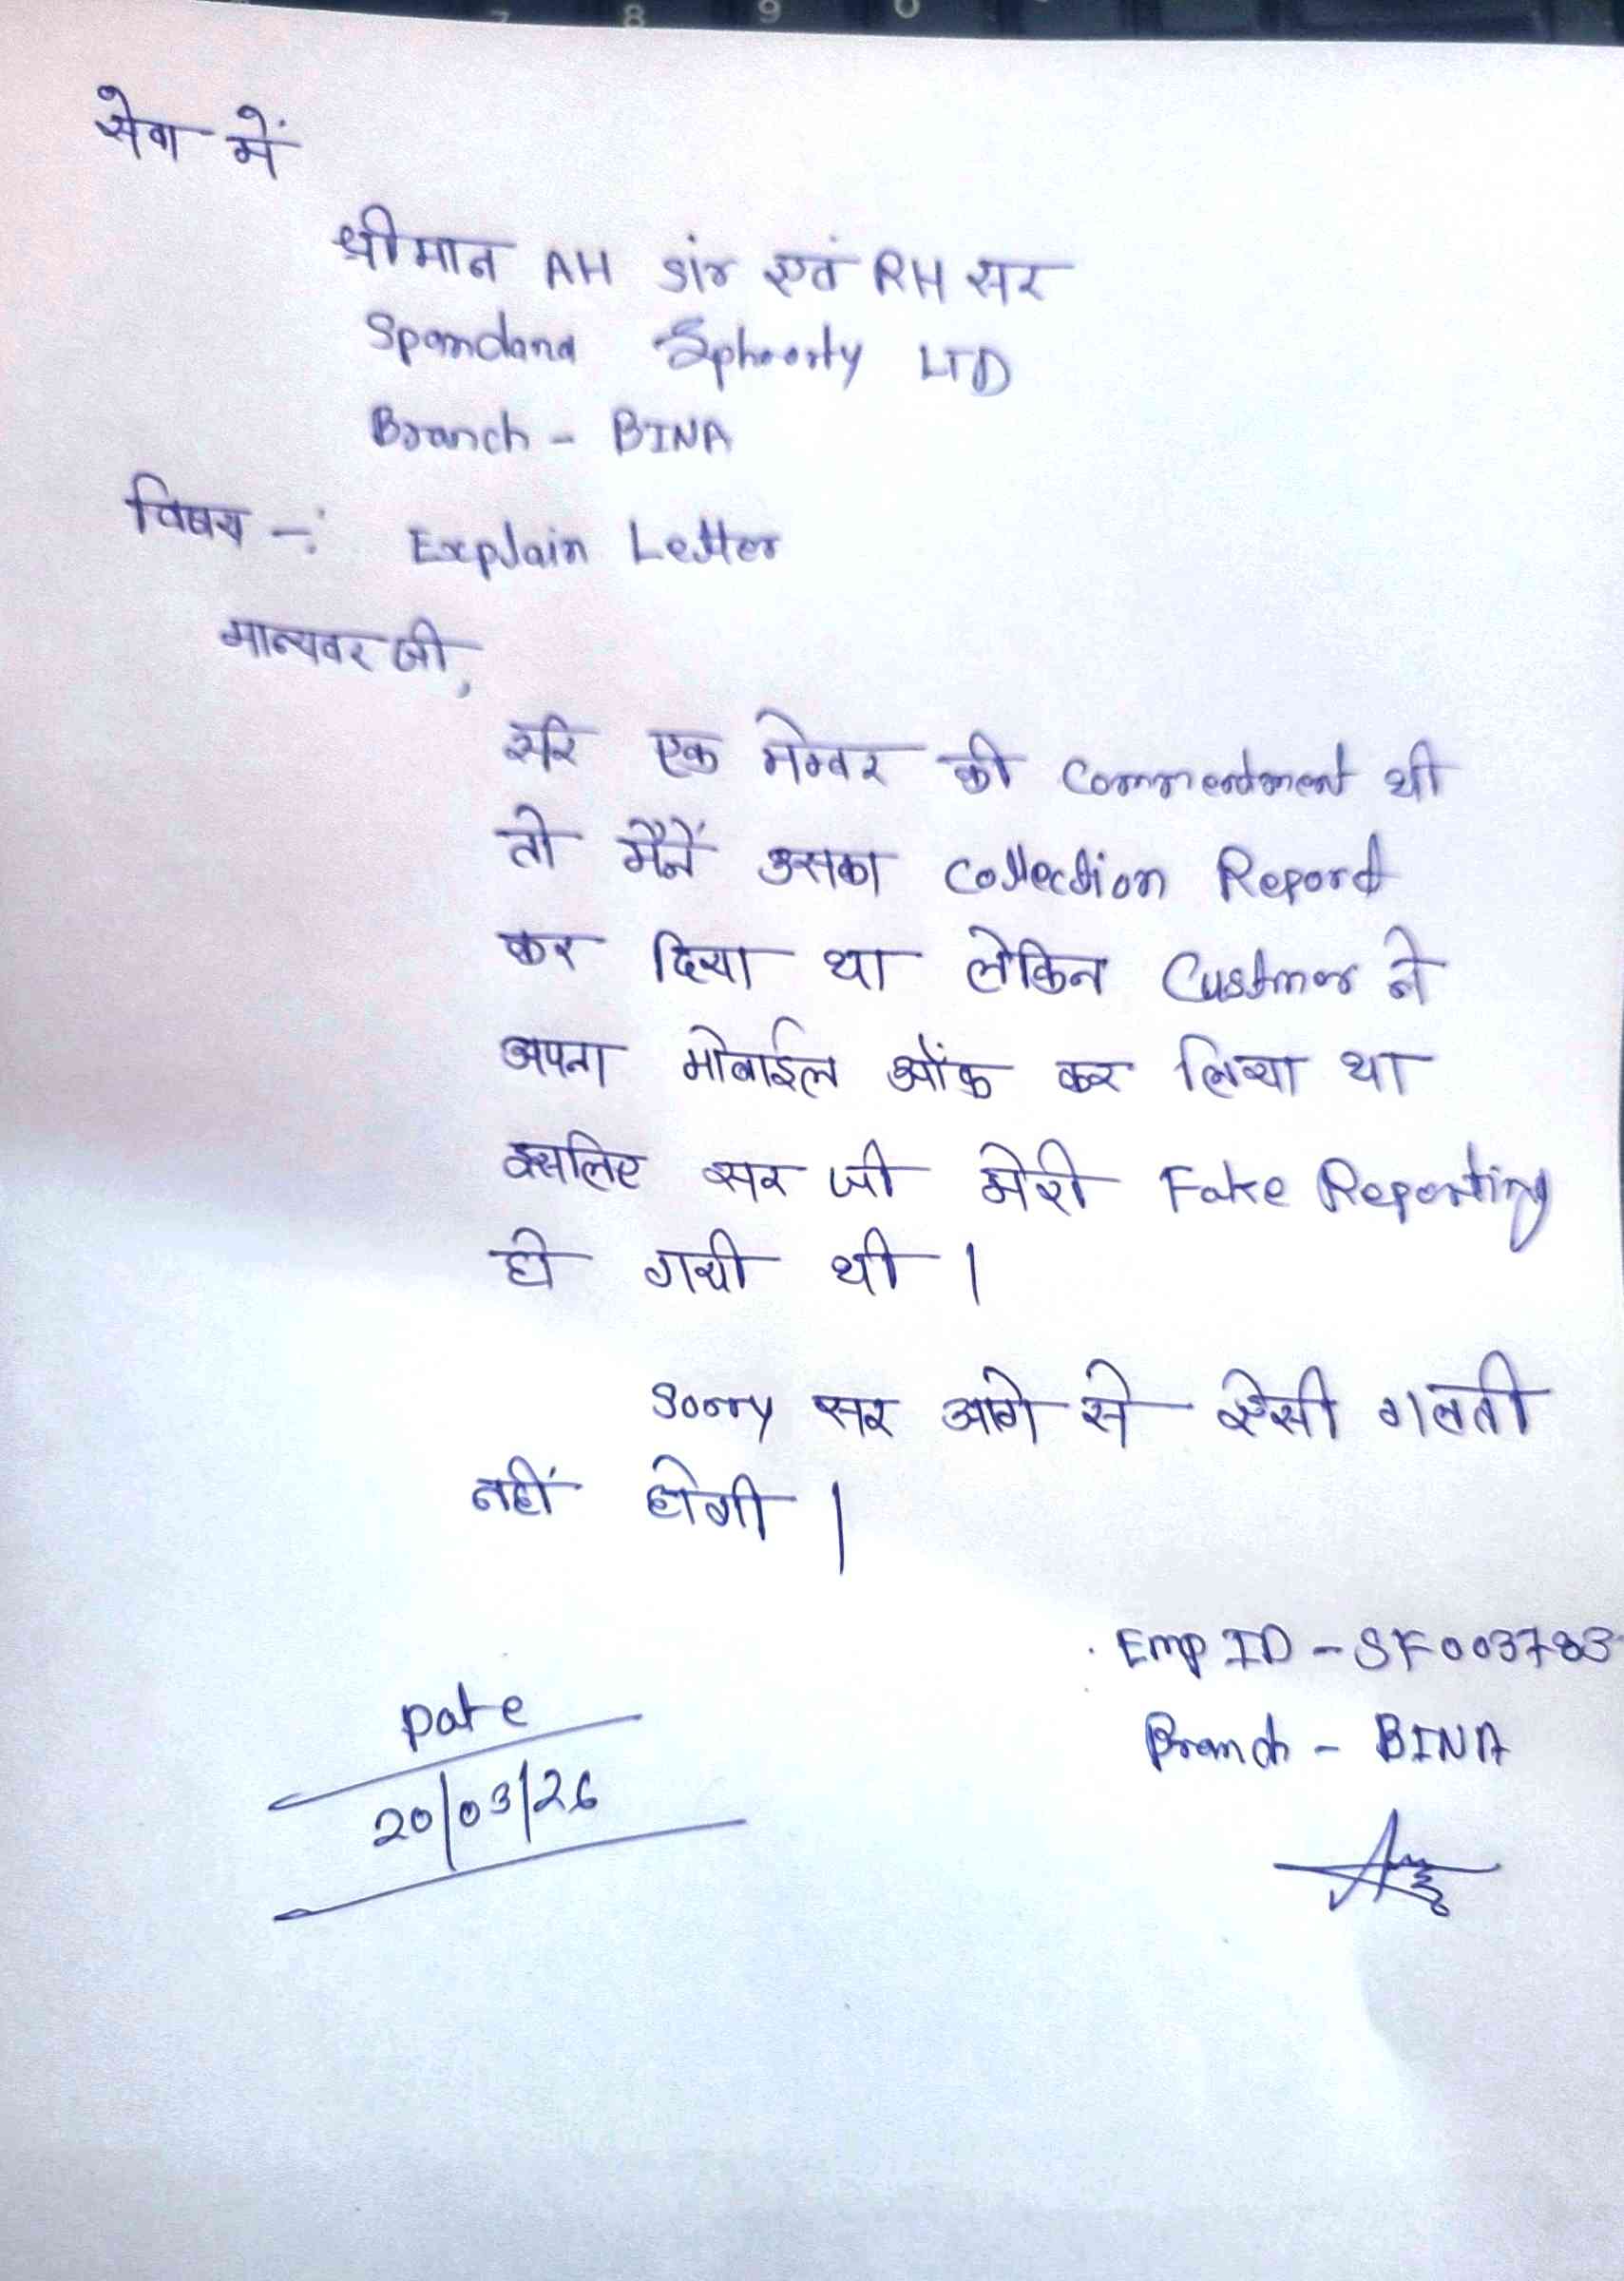 7 8 9 0
सेवा में
श्रीमान AH सर एवं RH सर
Spandana Sphoorty LTD
Branch - BINA
विषय -: Explain Letter
मान्यवर जी,
सर एक मेम्बर की Commendment थी
तो मैनें उसका Collection Report
कर दिया था लेकिन Custmor ने
अपना मोबाईल ऑफ कर लिया था
इसलिए सर जी मेरी Fake Reporting
हो गयी थी।
Sorry सर आगे से ऐसी गलती
नहीं होगी।
Emp ID - SF003783
Date
Branch - BINA
20/03/26